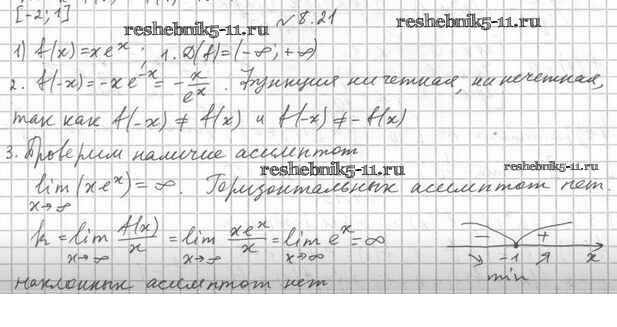 [-2; 1]
№ 8.21
reshebnik5-11.ru
1) f(x)=xeˣ; 1. D(f)=(-∞; +∞)
2. f(-x)=-xe⁻ˣ=-x/eˣ. Функция ни четная, ни нечетная,
так как f(-x)≠f(x) и f(-x)≠-f(x)
reshebnik5-11.ru
3. Проверим наличие асимптот
reshebnik5-11.ru
reshebnik5-11.ru
lim x→∞ (xeˣ)=∞. Горизонтальных асимптот нет.
k=lim x→∞ f(x)/x=lim x→∞ xeˣ/x=lim x→∞ eˣ=∞
- +
-1 x
min
reshebnik5-11.ru
наклонных асимптот нет